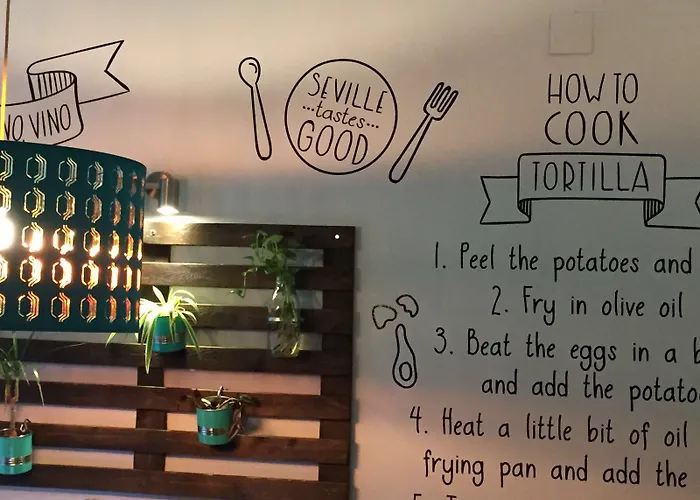 NO VINO
SEVILLE
...tastes...
GOOD
HOW TO
COOK
TORTILLA
1. Peel the potatoes and
2. Fry in olive oil
3. Beat the eggs in a
and add the
4. Heat a little bit of oil
frying pan and add the